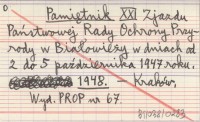 Pamiętnik XXI Zjazdu
Państwowej Rady Ochrony Przy-
rody w Białowieży w dniach od
2 do 5 października 1947 roku.
1948. — Kraków,
Wyd. PROP nr 67.